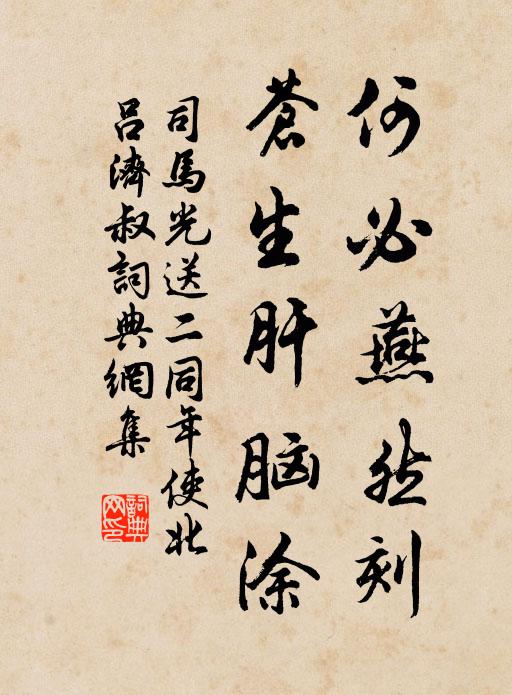 何必燕然刻
蒼生肝脑涂
司馬光送二同年使北
吕濟叔詞典網集
詞典
网印